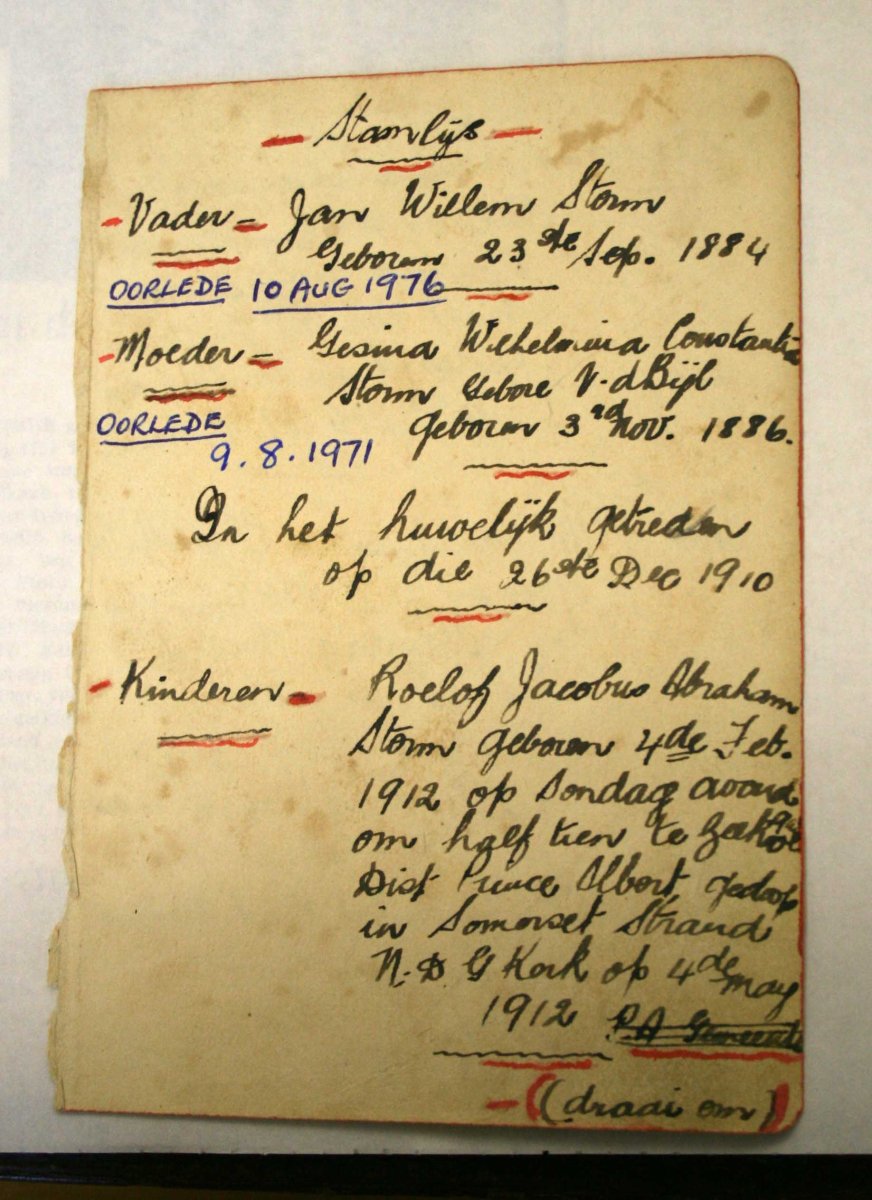 Stamlijs
Vader = Jan Willem Storm
Geboren 23ste Sep. 1884
OORLEDE 10 AUG 1976
Moeder = Gesina Wilhelmina Constantia
Storm Gebore V. d Bijl
OORLEDE geboren 3rd Nov. 1886.
9.8.1971
In het huwelijk getreden
op die 26ste Dec 1910
Kinderen = Roelof Jacobus Abraham
Storm geboren 4de Feb.
1912 op Sondag avond
om half tien te
Dist Prince Albert, gedoop
in Somerset Strand
N. D G Kerk op 4de May
1912 P.A Gemeente
(draai om)